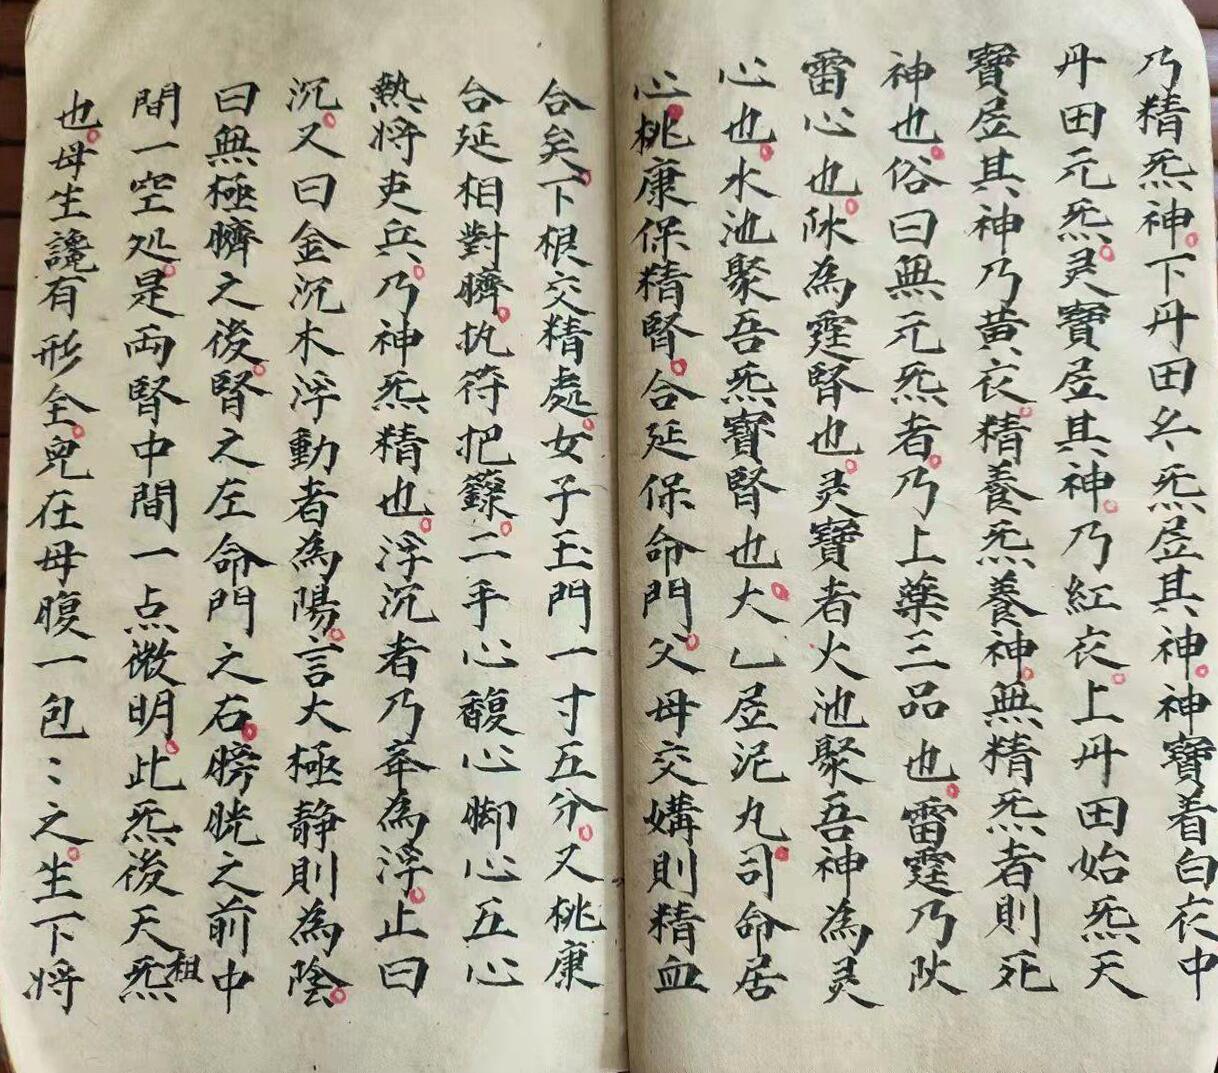 乃精炁神。下丹田幺炁𡉏其神。神寶着白衣中
丹田元炁。灵寶𡉏其神。乃紅衣。上丹田始炁天
寶𡉏其神乃黄衣。精養炁養神。無精炁者則死
神也。俗曰無元炁者。乃上藥三品也。雷霆乃阦
雷心也。阦為霆腎也。灵寶者火池聚吾神為灵
心也。水池聚吾炁寶腎也。大乙𡉏泥丸。司命居
心。桃康保精腎。合延保命門。父母交媾則精血
合矣。下根交精處。女子玉門一寸五分。又桃康
合延相對臍。执符把籙。二手心馥心脚心五心
熱将吏兵。乃神炁精也。浮沉者乃莘為浮。止曰
沉。又曰金沉木浮動者為陽。言大極静則為陰。
曰無極臍之後。腎之左命門之右。膀胱之前中
間一空処。是両腎中間一点微明。此炁後天祖炁
也。母生讒有形全。兒在母腹一包：之。生下将